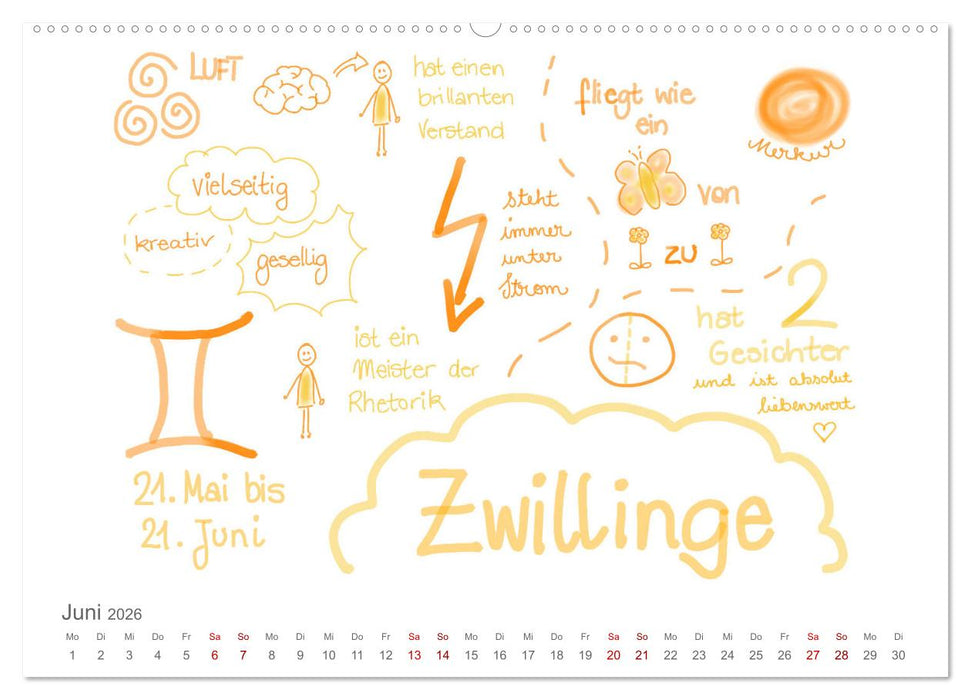 LUFT
hat einen
brillanten
Verstand
fliegt wie
ein
von
zu
Merkur
vielseitig
kreativ
gesellig
steht
immer
unter
Strom
ist ein
Meister der
Rhetorik
hat 2
Gesichter
und ist absolut
liebenswert
21. Mai bis
21. Juni
Zwillinge
Juni 2026
Mo Di Mi Do Fr Sa So Mo Di Mi Do Fr Sa So Mo Di Mi Do Fr Sa So Mo Di Mi Do Fr Sa So Mo Di
1 2 3 4 5 6 7 8 9 10 11 12 13 14 15 16 17 18 19 20 21 22 23 24 25 26 27 28 29 30